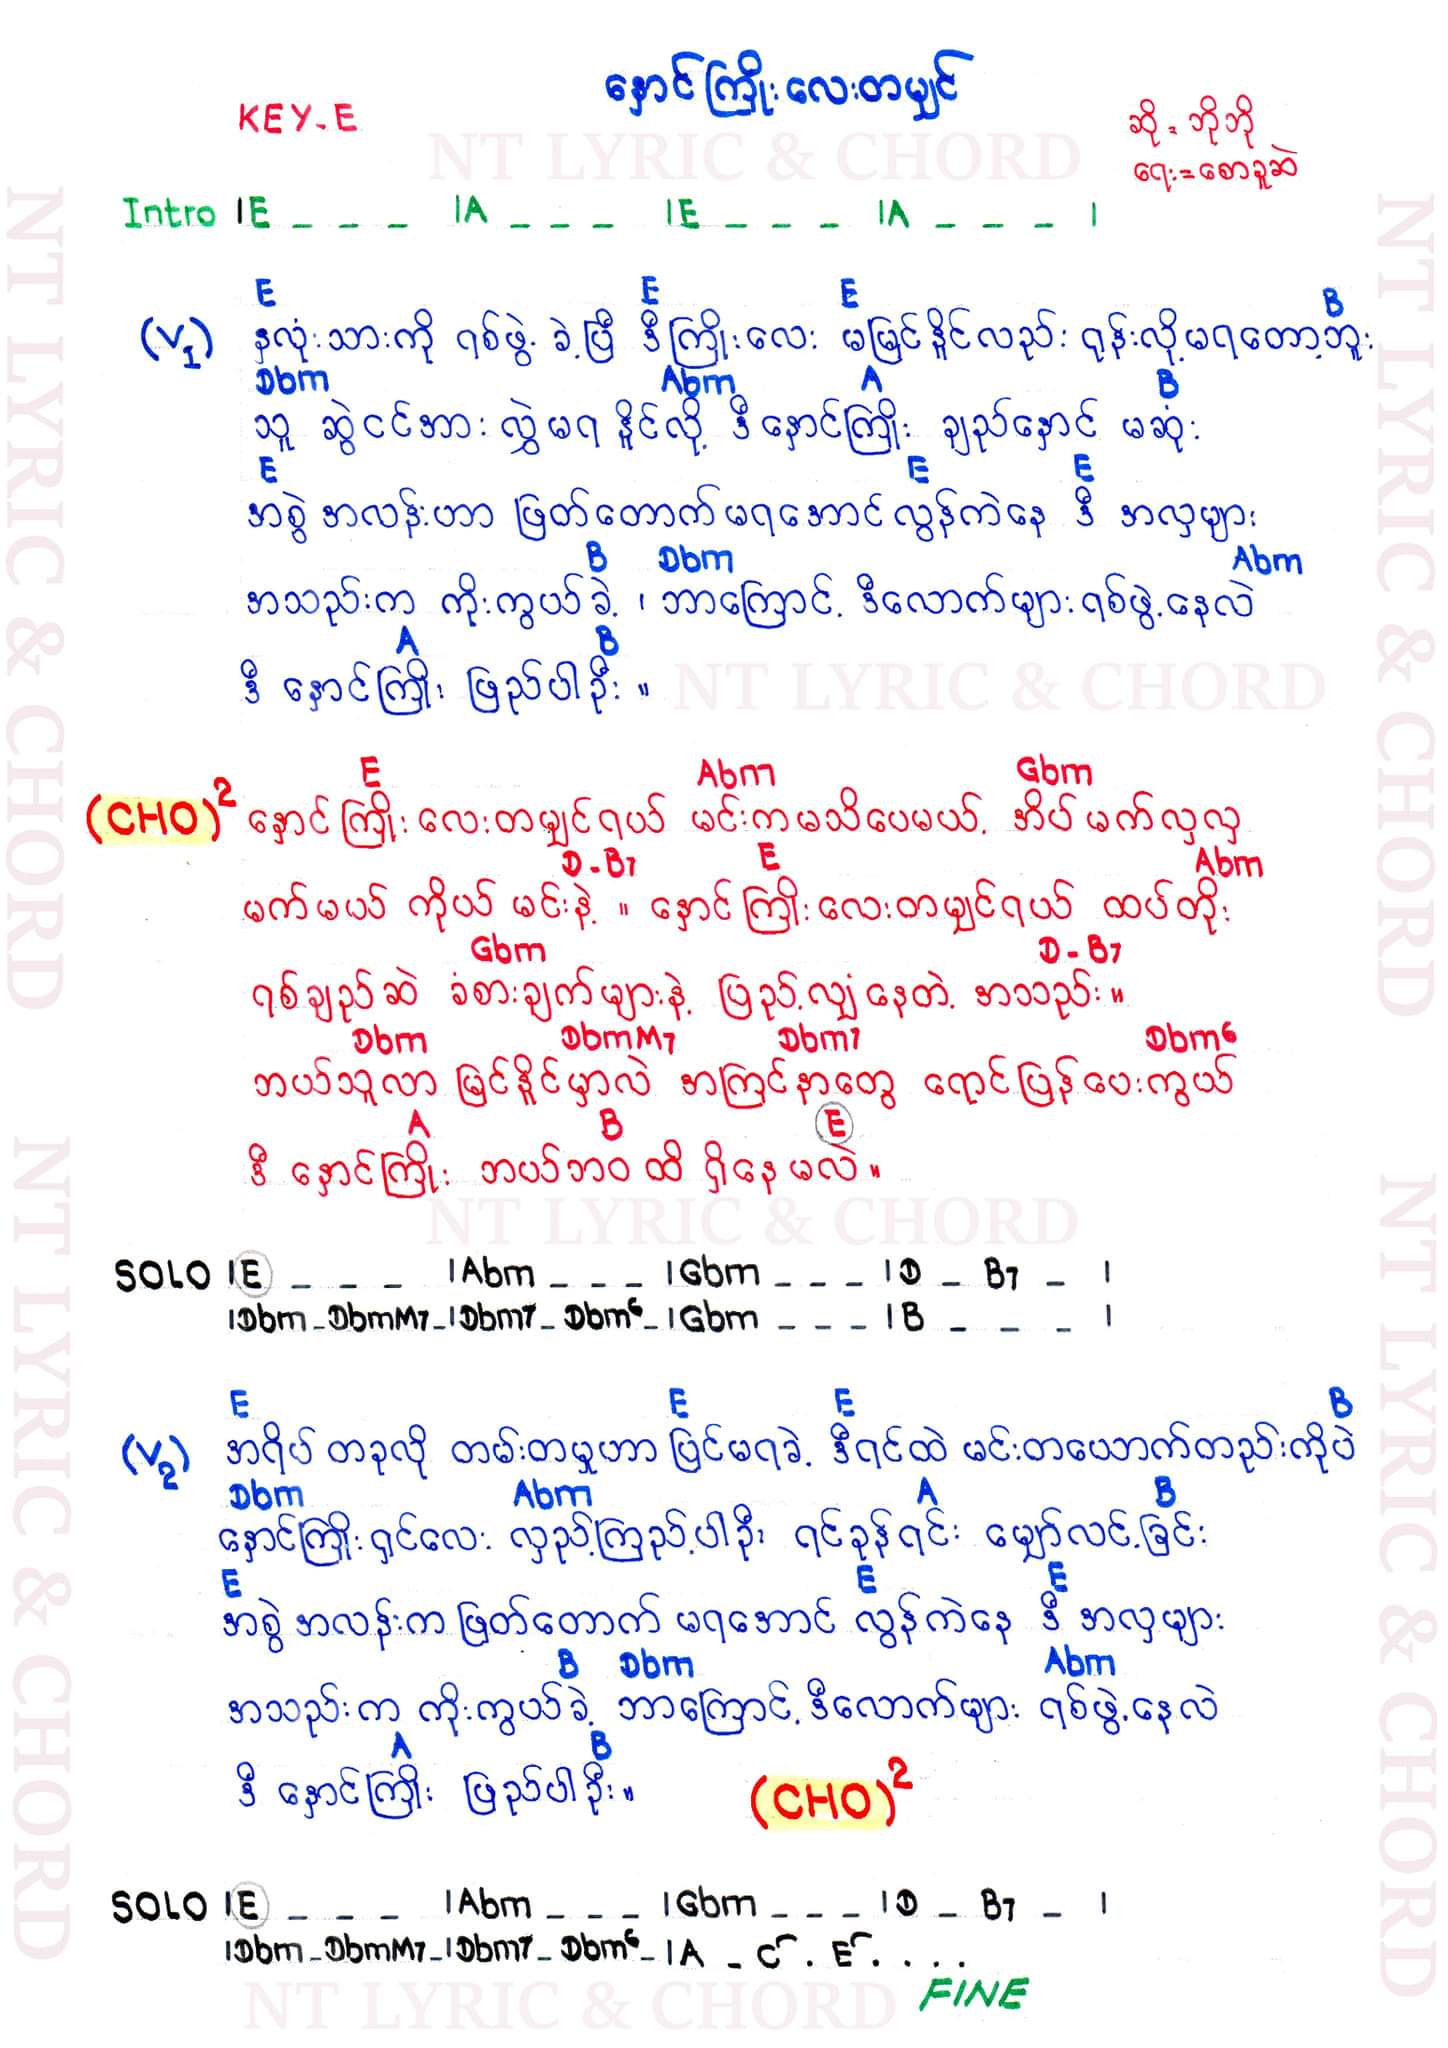 နှောင်ကြိုးလေးတမျှင်
KEY-E
ဆို = ဘိုဘို
ရေး = စောခူဆဲ
NT LYRIC & CHORD
Intro |E _ _ _ |A _ _ _ |E _ _ _ |A _ _ _ |
E E E B
(V1) နှလုံးသားကို ရစ်ဖွဲ့ခဲ့ပြီ ဒီကြိုးလေး မမြင်နိူင်လည်း ရုန်းလို့မရတော့ဘူး
Dbm Abm A B
သူ ဆွဲငင်အား လွှဲမရနိူင်လို့ ဒီနှောင်ကြိုး ချည်နှောင် မဆုံး
E E E
အစွဲအလန်းဟာ ဖြတ်တောက်မရအောင်လွန်ကဲနေ ဒီ အလှများ
B Dbm Abm
အသည်းက ကိုးကွယ်ခဲ့ ၊ ဘာကြောင့် ဒီလောက်များရစ်ဖွဲ့နေလဲ
A B
ဒီ နှောင်ကြိုး ဖြည်ပါဦး ။
NT LYRIC & CHORD
E Abm Gbm
(CHO)2 နှောင်ကြိုးလေးတမျှင်ရယ် မင်းကမသိပေမယ့် အိပ်မက်လှလှ
D - B7 E Abm
မက်မယ် ကိုယ် မင်းနဲ့ ။ နှောင်ကြိုးလေးတမျှင်ရယ် ထပ်တိုး
Gbm D - B7
ရစ်ချည်ဆဲ ခံစားချက်များနဲ့ ဖြည့်လျှံနေတဲ့ အသည်း။
Dbm DbmM7 Dbm7 Dbm6
ဘယ်သူလာ မြင်နိူင်မှာလဲ အကြင်နာတွေ ရောင်ပြန်ပေးကွယ်
A B E
ဒီ နှောင်ကြိုး ဘယ်ဘဝထိ ရှိနေမလဲ။
NT LYRIC & CHORD
SOLO |E _ _ _ |Abm _ _ _ |Gbm _ _ _ |D _ B7 _ |
|Dbm _ DbmM7 _ |Dbm7 _ Dbm6 _ |Gbm _ _ _ |B _ _ _ |
E E E B
(V2) အရိပ်တခုလို တမ်းတမှုဟာ ပြင်မရခဲ့ ဒီရင်ထဲ မင်းတယောက်တည်းကိုပဲ
Dbm Abm A B
နှောင်ကြိုးရှင်လေး လှည့်ကြည့်ပါဦး ရင်ခုန်ရင်း မျှော်လင့်ခြင်း
E E E
အစွဲအလန်းက ဖြတ်တောက် မရအောင် လွန်ကဲနေ ဒီ အလှများ
B Dbm Abm
အသည်းက ကိုးကွယ်ခဲ့ ဘာကြောင့် ဒီလောက်များ ရစ်ဖွဲ့နေလဲ
A B
ဒီ နှောင်ကြိုး ဖြည်ပါဦး။ (CHO)2
SOLO |E _ _ _ |Abm _ _ _ |Gbm _ _ _ |D _ B7 _ |
|Dbm _ DbmM7 _ |Dbm7 _ Dbm6 _ |A _ C . E . . . .
FINE
NT LYRIC & CHORD
NT LYRIC & CHORD
NT LYRIC & CHORD
NT LYRIC & CHORD
NT LYRIC & CHORD